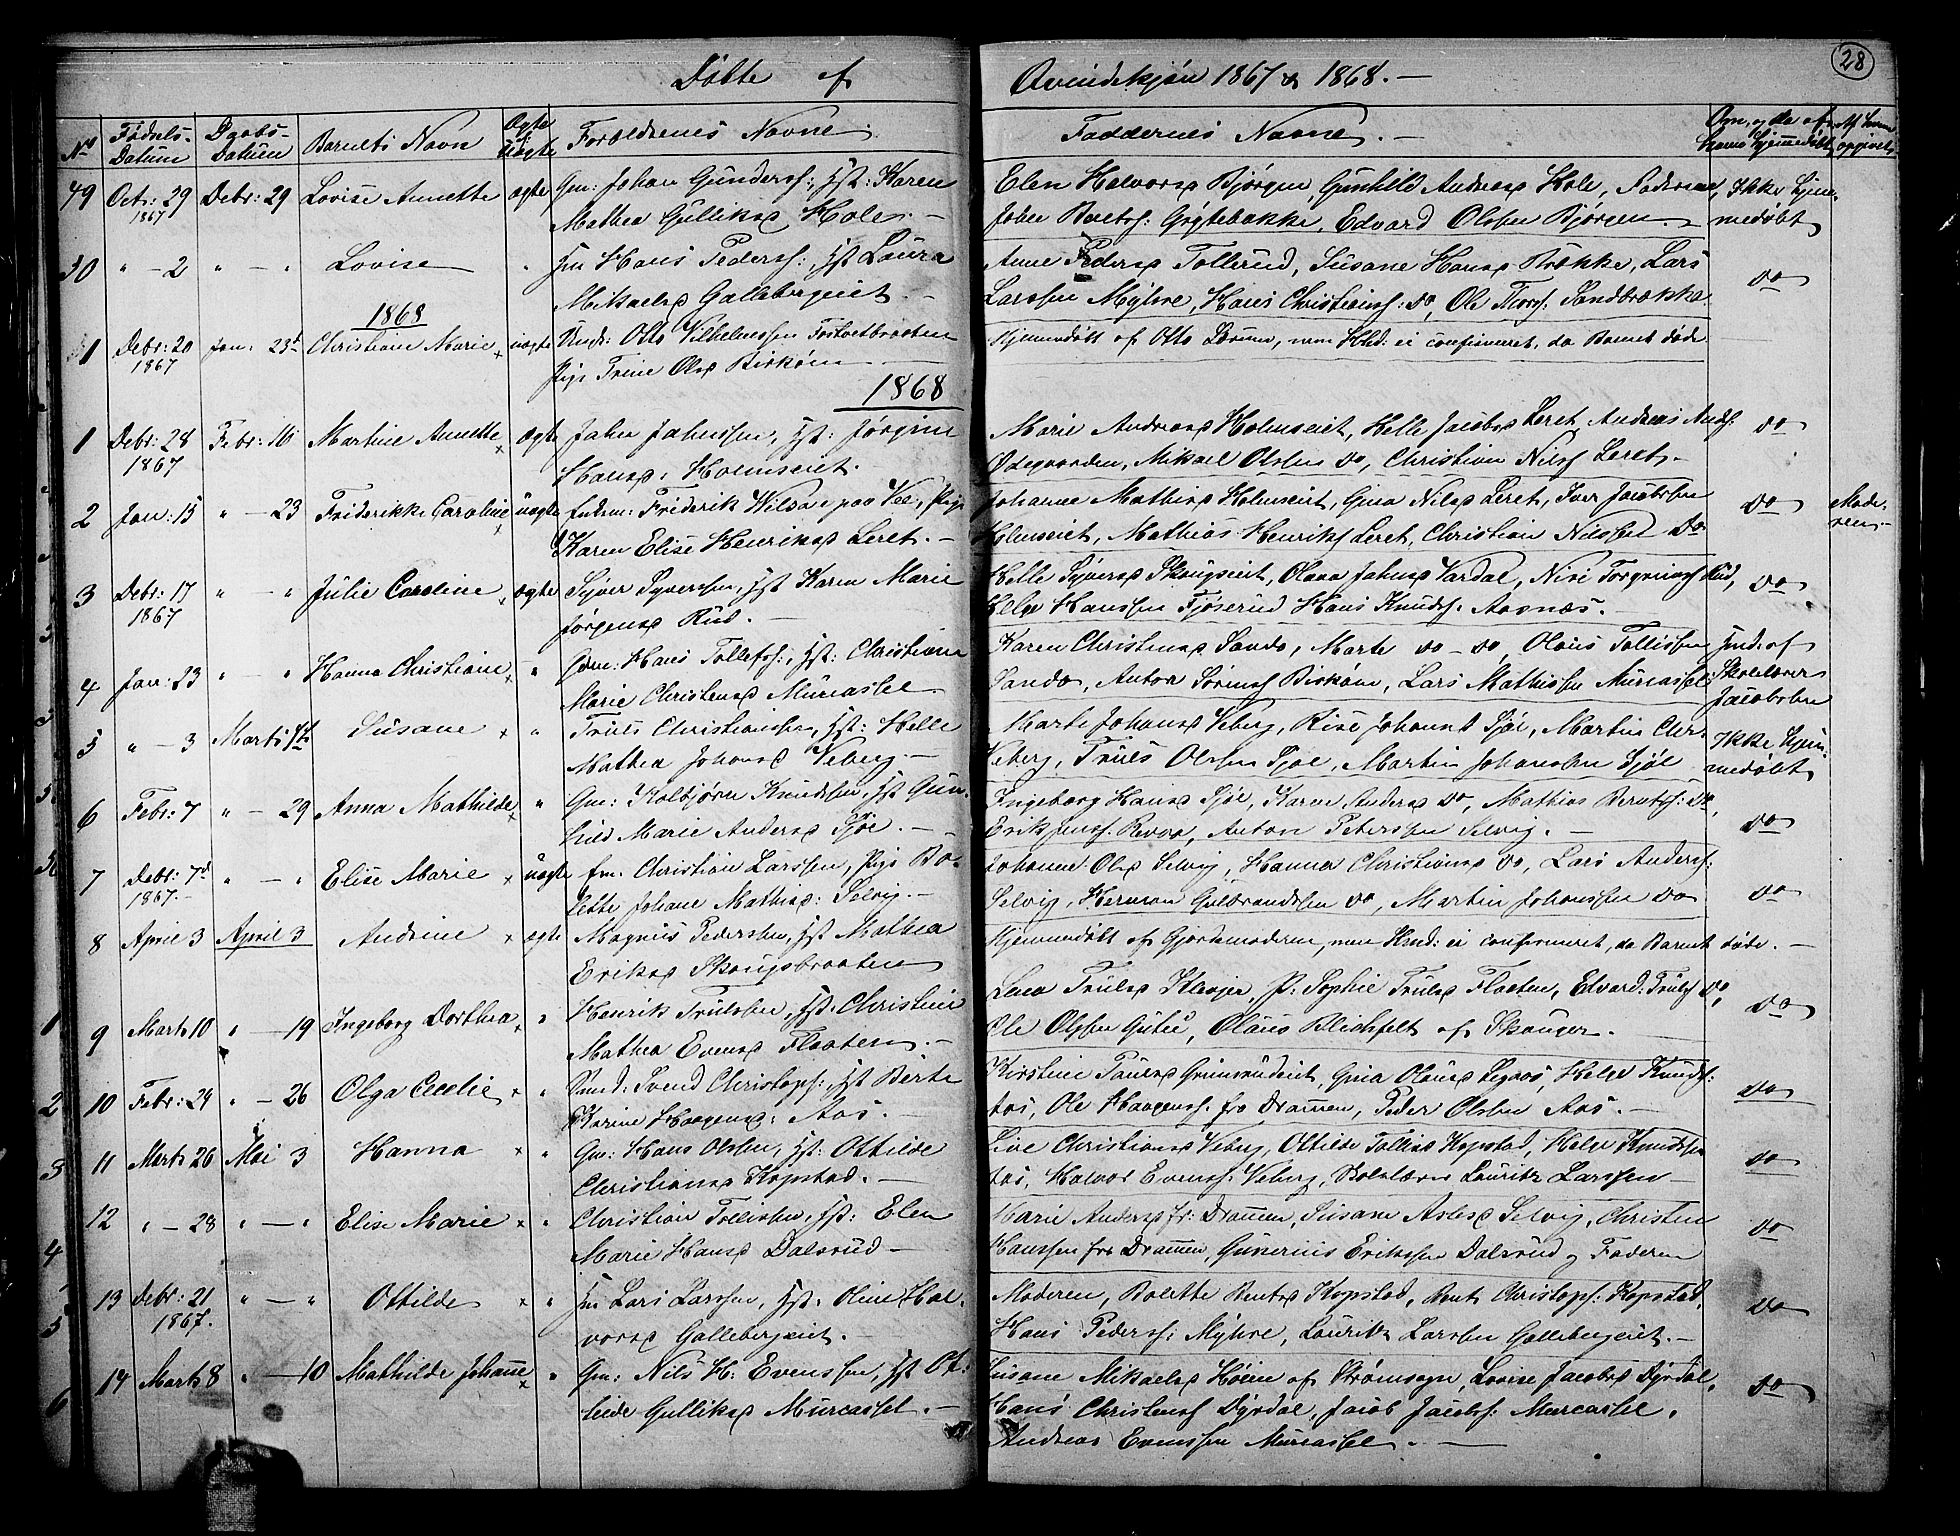 28
Døbte af Qvindekjøn 1867 & 1868. —
No Fødsels- Datum Daabs- Datum Barnets Navn Ægte Uægte Forældrenes Navne. Faddernes Navne. —
49 Octr: 29 1867 Decbr: 29 Lovise Annette ægte Gm: Johan Gunderss:, Hst: Karen
Mathea Gulliksd Hole. —
Elen Halvorsd Bjørgen, Gunhild Andersd Hole, Faderen,
Edvard Olssen Bjørgen. Ikke hjem-
medøbt
50 " — 2 " — " Lovise " Hm Hans Pederss:, Hst Laura
Mikaelsd Gallebergeiet. —
Anne Pedersd Tollerud, Susane Hansd Brække, Lars
Larssen Myhre, Hans Christianss: do, Ole Thorss: Sandbrække do
1868
1 Debr: 20 1867 Jan: 23d Christiane Marie × uægte Ungk: Otto Vilhelmssen Tostvetbraaten
Pige Trine Olsd Birkøen
Hjemmedøbt af Otto Lørum, men Hhd: ei confirmeret, da Barnet døde
1868
1 Debr: 28 1867 Febr: 16 Martine Annette × ægte Johan Johnssen, Hst: Jørgine
Hansd: Holmseiet. —
Marie Andersd Holmseiet, Helle Jacobsd Leret, Andreas
Ødegaarden, Mikael Olssen do, Christian Nilsf Leret. — do
2 Jan: 15 " — 23 Friderikke Caroline × uægte Friderik Nilssen paa Vee, Pige
Karen Elise Henriksd Leret. —
Johanne Mathisd Holmseiet, Gina Nilsd Leret, Iver Jacobssen
Holmseiet, Mathias Henriksf Leret, Christian Nilssen do do Mode-
ren —
3 Debr: 17 1867 " — " Julie Caroline × ægte Syver Syverssen, Hst Karen Marie
Jørgensd Rud. —
Helle Syversd Skougseiet, Olava Johnsd Vardal, Rud,
Helge Hanssen Fjøserud Hans Knudss. Aasnæs. — do
4 Jan: 23 " — " Hanna Christiane × " Hans Tollefss:, Hst: Christiane
Marie Christensd Murcassel
Karen Christensd Sando, Marte do — do, Olaus Tollissen
Sando, Anton Sørenss Birkøen, Lars Mathissen Murcassel hmd: af
Skolelærer
Jacobsen
5 " — 3 Marts Susane × " Truls Christianssen, Hst: Helle
Mathea Johansd Veberg. —
Marte Johansd Veberg, Rise Johannsd Sjøl, Martin Chr:
Veberg, Truls Olssen Sjøl, Martin Johanssen Sjøl Ikke hjem-
medøbt
6 Febr: 7 " — 29 Anna Mathilde × " Gm: Kolbjørn Knudssen, Hst Gun-
hild Marie Andersd Sjøl. —
Ingeborg Hansd Sjøl, Karen Andersd do, Mathias Berntss: do,
Erik Jenss: Revaa, Anton Peterssen Selvig. — do
7 Debr: 7d 1867. — " — " Elise Marie × uægte fm. Christian Larssen, Pige Bo-
lette Johane Mathisd: Selvig. —
Johanne Olsd Selvig, Hanna Christiansd do, Lars Anderss:
Selvig, Herman Guldbrandssen do, Martin Johanssen do do
8 April 3 April 3 Andrine × ægte Magnus Pederssen, Hst Mathea
Eriksd Skougsbraaten
Hjemmedøbt af Gjordemoderen, men Hmd: ei confirmeret, da Barnet døde. —
9 Marts 10 " — 19 Ingeborg Dorthea × " Henrik Trulssen, Hst: Christine
Mathea Evensd Flaaten. —
Lena Trulsd Klevjer, P: Sophie Trulsd Flaaten, Edvard: Trulsf do,
Ole Olssen Gutu, Olaus Blichfelt af Skouger. — do
10 Febr: 29 " — 26 Olga Cecelie × " Svend Christophs:, Hst Berte
Karine Haagensd: Aas. —
Kirstine Paulsd Grimsrudeiet, Gina Olausd Legaas, Helge Knuds:
Aas, Ole Haagenss: fra Drammen, Peder Olssen Aas. — do
11 Marts 26 Mai 3 Hanna × " Gm: Hans Olssen, Hst: Ottilde
Christiansd Kopstad. —
Live Christiansd Veberg, Ottilde Tollisd Kopstad, Helge Knudssen
Aas, Halvor Evenss: Veberg, Skolelærer Lauritz Larssen — do
12 " — 28 " — " Elise Marie × " Christian Tollissen, Hst: Elen
Marie Hansd Dalsrud —
Marie Andersd fr: Drammen, Susane Aslesd Selvig, Christen
Hanssen fra Drammen, Gunerius Erikssen Dalsrud og Faderen do
13 Debr: 21 1867. " — " Ottilde × " Hm Lars Larssen, Hst: Oline Hal-
vorsd Gallebergeiet. —
Moderen, Bolette Berntsd Kopstad, Bernt Christophs: Kopstad,
Hans Pederss: Myhre, Lauritz Larssen Gallebergeiet. — do
14 Marts 8 " — 10 Mathilde Johanne × " Gm: Nils H: Evenssen, Hst Ot-
tilde Gulliksd Murcassel. —
Susane Mikaelsd Høien af Strømsogn, Lovise Jacobsd Dyrdal,
Hans Christensf Dyrdal, Jacob Jacobs: Murcassel,
Andreas Evenssen Murcassel. — do